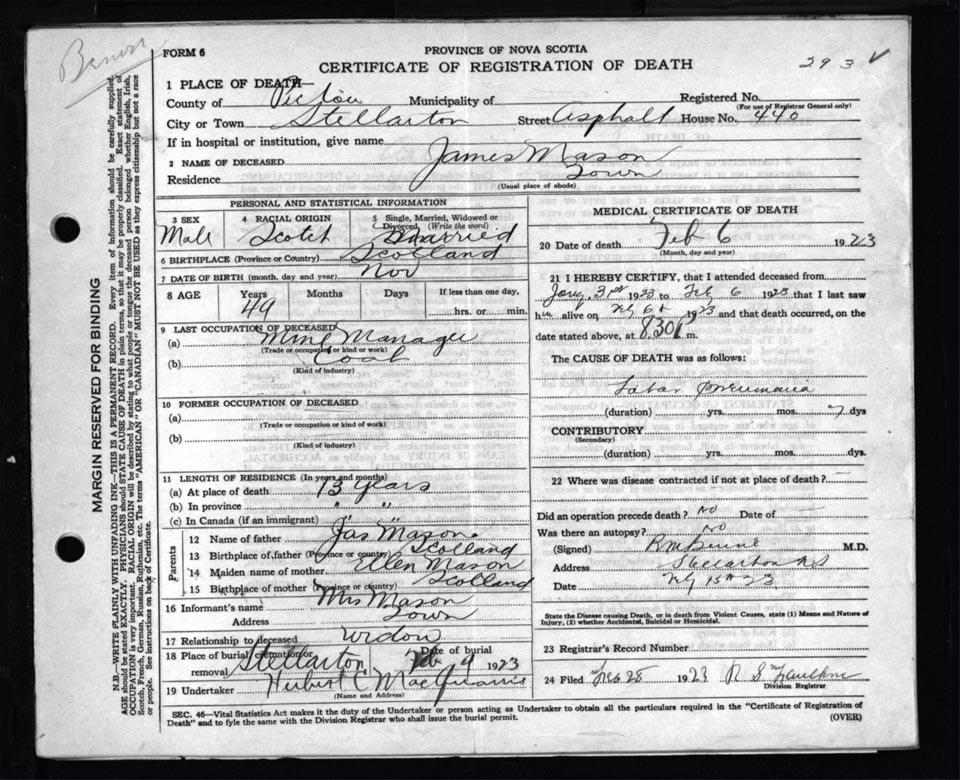 FORM 6
PROVINCE OF NOVA SCOTIA
CERTIFICATE OF REGISTRATION OF DEATH
293
1 PLACE OF DEATH—
County of Pictou Municipality of Registered No.
(For use of Registrar General only)
City or Town Stellarton Street Asphalt House No. 440
If in hospital or institution, give name
2 NAME OF DECEASED James Mason
Residence Town
(Usual place of abode)
PERSONAL AND STATISTICAL INFORMATION
3 SEX 4 RACIAL ORIGIN 5 Single, Married, Widowed or Divorced, (Write the word)
Male Scotch Married
6 BIRTHPLACE (Province or Country) Scotland
7 DATE OF BIRTH (month, day and year) Nov
8 AGE Years Months Days If less than one day,
49 hrs. or min.
9 LAST OCCUPATION OF DECEASED
(a) Mine Manager
(Trade or occupation or kind or work)
(b) Coal
(Kind of industry)
10 FORMER OCCUPATION OF DECEASED
(a)
(Trade or occupation or kind of work)
(b)
(Kind of industry)
11 LENGTH OF RESIDENCE (In years and months)
(a) At place of death 13 years
(b) In province " "
(c) In Canada (if an immigrant) " "
Parents
12 Name of father Jas Mason
13 Birthplace of father (Province or country) Scotland
14 Maiden name of mother Ellen Mason
15 Birthplace of mother (Province or country) Scotland
16 Informant's name Mrs Mason
Address Town
17 Relationship to deceased Widow
18 Place of burial, cremation or removal Stellarton Date of burial Feb 9 1923
19 Undertaker Herbert C
(Name and Address)
MEDICAL CERTIFICATE OF DEATH
20 Date of death Feb 6 1923
(Month, day and year)
21 I HEREBY CERTIFY, that I attended deceased from
3rd 1923 to Feb 6 1923 that I last saw
him alive on Feb 6th 1923 and that death occurred, on the
date stated above, at 8.30 m.
The CAUSE OF DEATH was as follows:
Lobar pneumonia
(duration) yrs. mos. 7 dys
CONTRIBUTORY
(Secondary)
(duration) yrs. mos. dys
22 Where was disease contracted if not at place of death?
Did an operation precede death? No Date of
Was there an autopsy? No
(Signed) M.D.
Address Stellarton NS
Date Feb 15th 23
State the Disease causing Death, or in death from Violent Causes, state (1) Means and Nature of
Injury, (2) whether Accidental, Suicidal or Homicidal.
23 Registrar's Record Number
24 Filed Feb 28 1923 R S
Division Registrar
SEC. 46—Vital Statistics Act makes it the duty of the Undertaker or person acting as Undertaker to obtain all the particulars required in the "Certificate of Registration of
Death" and to fyle the same with the Division Registrar who shall issue the burial permit.
(OVER)
MARGIN RESERVED FOR BINDING
N.B.—WRITE PLAINLY WITH UNFADING INK—THIS IS A PERMANENT RECORD. Every item of information should be carefully supplied.
AGE should be stated EXACTLY. PHYSICIANS should STATE CAUSE OF DEATH in plain terms, so that it may be properly classified. Exact statement of
OCCUPATION is very important. RACIAL ORIGIN will be described by stating to what people or tongue the deceased person belonged whether English, Irish,
Scotch, French, German, Russian, Ruthenian, etc. The terms "AMERICAN" OR "CANADIAN" MUST NOT BE USED as they express citizenship but not a race
or people. See instructions on back of Certificate.